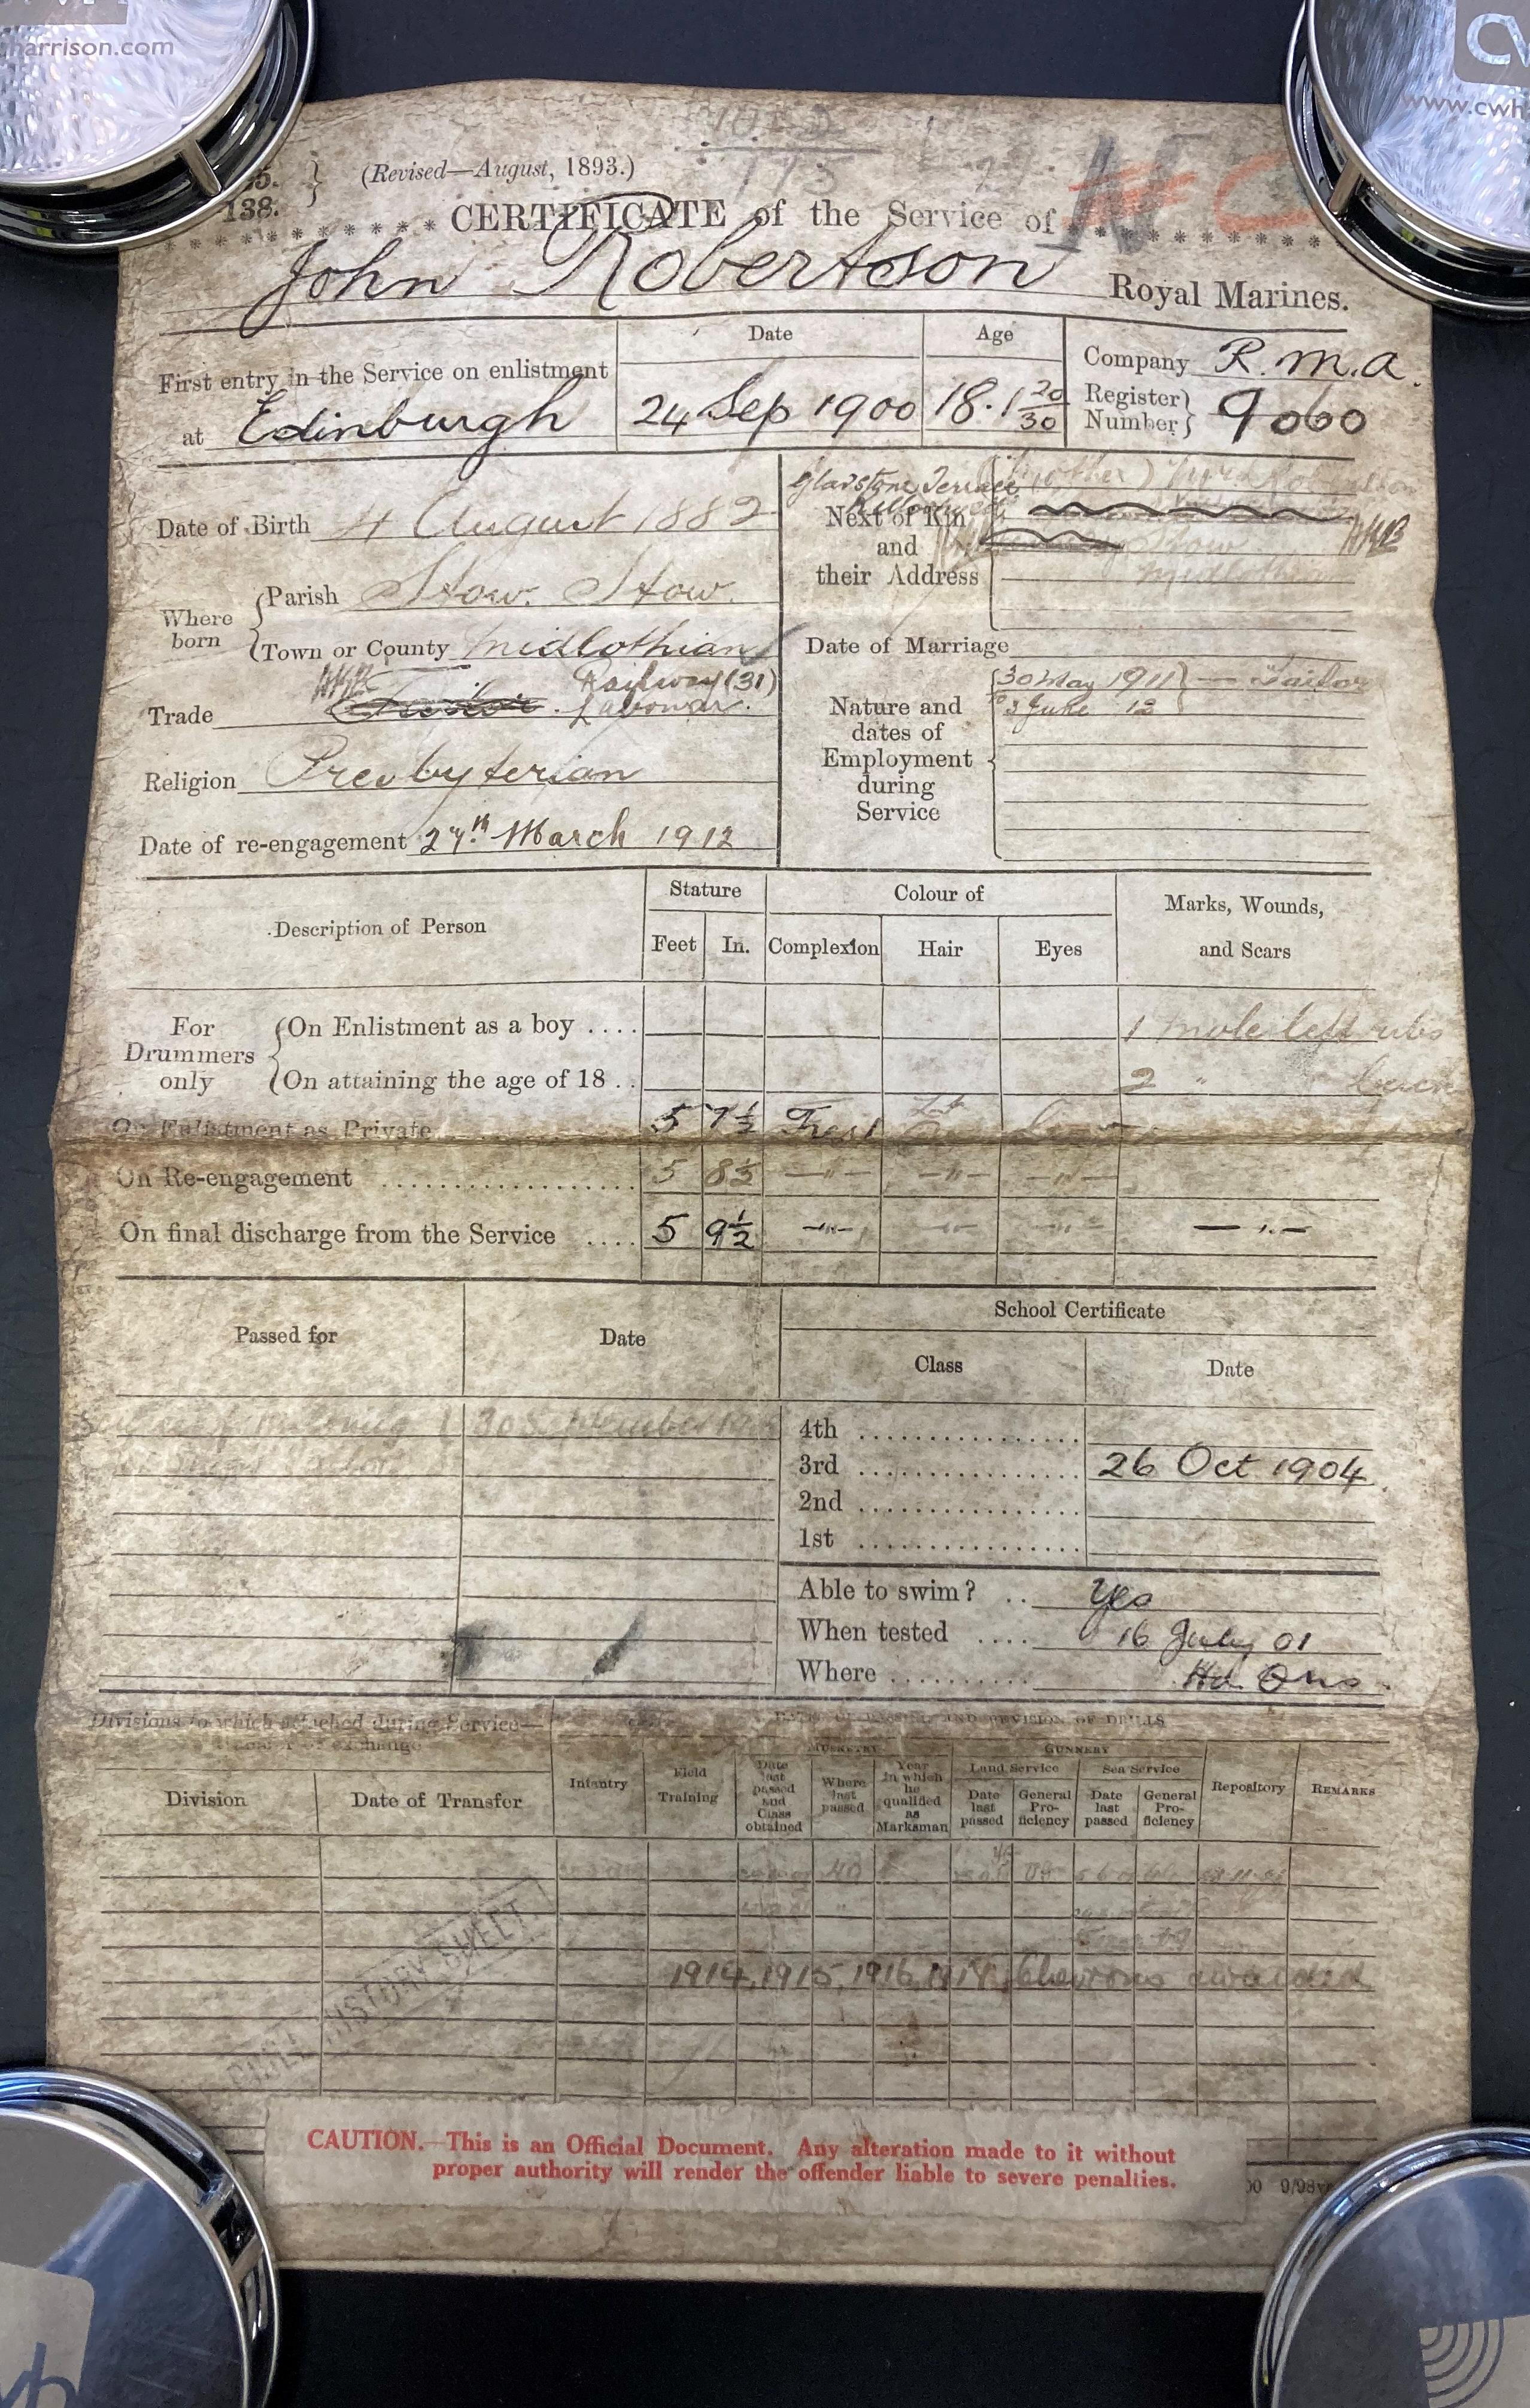 harrison.com
www.cwh
(Revised—August, 1893.)
138.
CERTIFICATE of the Service of
John Robertson Royal Marines.
First entry in the Service on enlistment
at Edinburgh
Date
24 Sep 1900
Age
18. 1 20/30
Company R.M.A.
Register Number 9060
Date of Birth 4 August 1882
Where born
Parish Stow. Stow.
Town or County Midlothian
Trade Railway (31)
Labourer.
Religion Presbyterian
Date of re-engagement 27th March 1912
Gladstone Terrace
(Mother)
Next of Kin
and
their Address
Stow
Midlothian
Date of Marriage
Nature and
dates of
Employment
during
Service
30 May 1911 — Tailor
to 3 June 12
Description of Person
Stature
Feet In.
Colour of
Complexion Hair Eyes
Marks, Wounds,
and Scars
For Drummers only
On Enlistment as a boy ....
1 mole left ribs
On attaining the age of 18 ..
2 "
On Enlistment as Private 5 7½ Fresh
On Re-engagement 5 8½ —"— —"— —"—
On final discharge from the Service .... 5 9½ —"— —"— —"— —"—
Passed for
Date
School Certificate
Class
Date
30 September
4th
3rd 26 Oct 1904
2nd
1st
Able to swim? .. Yes
When tested .... 16 July 01
Where Hd. Qrs.
Divisions to which attached during Service—
exchange
DATE OF PASSING AND REVISION OF DRILLS
Division
Date of Transfer
Infantry
Field Training
MUSKETRY
Date last passed and Class obtained
Where last passed
Year in which he qualified as Marksman
GUNNERY
Land Service
Date last passed
General Proficiency
Sea Service
Date last passed
General Proficiency
Repository
REMARKS
1914, 1915, 1916, 1917, Chevrons awarded
HISTORY SHEET
CAUTION.—This is an Official Document. Any alteration made to it without
proper authority will render the offender liable to severe penalties.
9/98